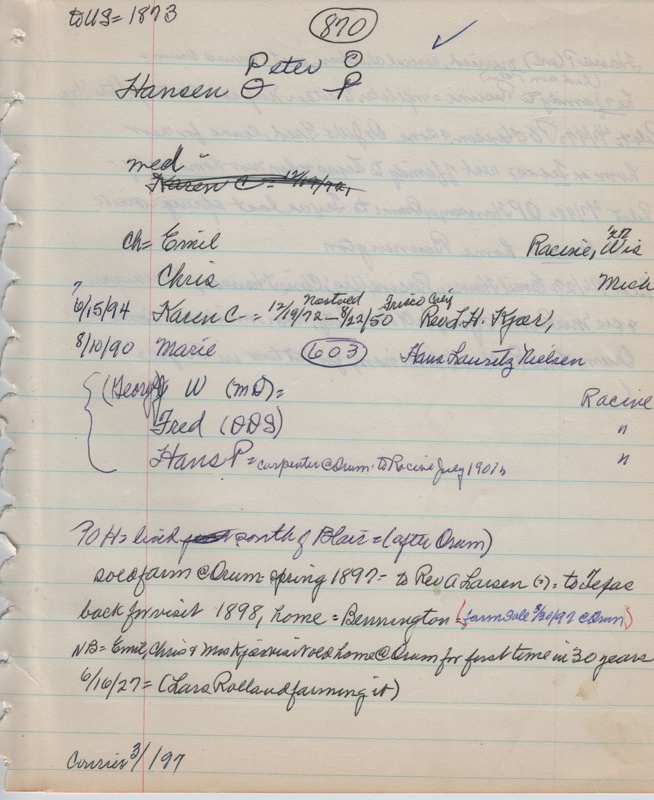 to US = 1873
870
Peter O
Hansen O P
med
Karen C = 12/19/72,
ch = Emil Racine, Wis
Chris Mich
6/15/94 Karen C = 12/19/72 – 8/22/50 Rev J. H. Kjær,
8/10/90 Marie 603 Hans Lauritz Nielsen
(George) W (MD) = Racine
Fred (DDS) "
Hans P = carpenter @ Orum - to Racine July 1901 "
POH = lived south of Blair = (after Orum)
sold farm @ Orum - spring 1897 - to Rev A Larsen (?) = to Texas
back for visit 1898, home = Bennington = (farm sale 3/30/97 @ Orum)
NB = Emil, Chris & Mrs Kjær visit old home @ Orum for first time in 30 years
6/16/27 = (Lars Rolland farming it)
Courier 3/1/97